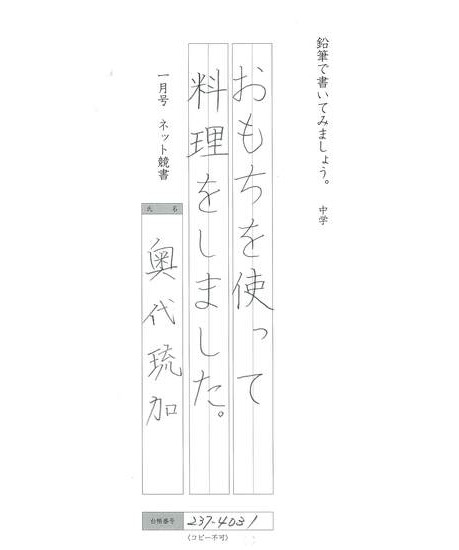 鉛筆で書いてみましょう。 中学
おもちを使って
料理をしました。
一月号 ネット競書
氏名
奥代琉加
台帳番号 237-4031
(コピー不可)